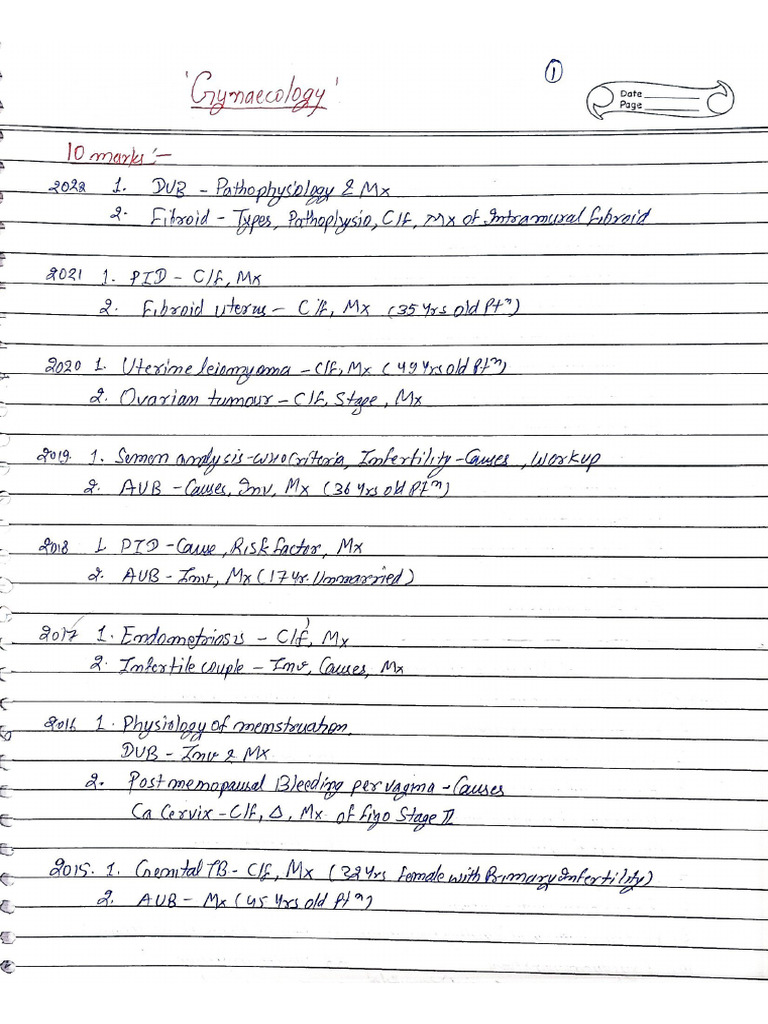 ①
'Gynaecology'
Date
Page
10 marks :-
2022 1. DUB - Pathophysiology & Mx
2. Fibroid - Types, Pathophysio, C/f, Mx of Intramural fibroid
2021 1. PID - C/f, Mx
2. Fibroid uterus - C/f, Mx (35 yrs old Ptⁿ)
2020 1. Uterine leiomyoma - C/f, Mx (49 yrs old Ptⁿ)
2. Ovarian tumour - C/f, Stage, Mx
2019. 1. Semen analysis - WHO Criteria, Infertility - Causes, Workup
2. AUB - Causes, Inv, Mx (36 yrs old Ptⁿ)
2018 1. PID - Cause, Risk factor, Mx
2. AUB - Inv, Mx (17 yr. Unmarried)
2017 1. Endometriosis - C/f, Mx
2. Infertile couple - Inv, Causes, Mx
2016 1. Physiology of menstruation,
DUB - Inv & Mx
2. Post menopausal Bleeding per vagina - Causes
Ca Cervix - C/f, Δ, Mx of figo Stage II
2015. 1. Genital TB - C/f, Mx (32 yrs female with Primary Infertility)
2. AUB - Mx (45 yrs old Ptⁿ)